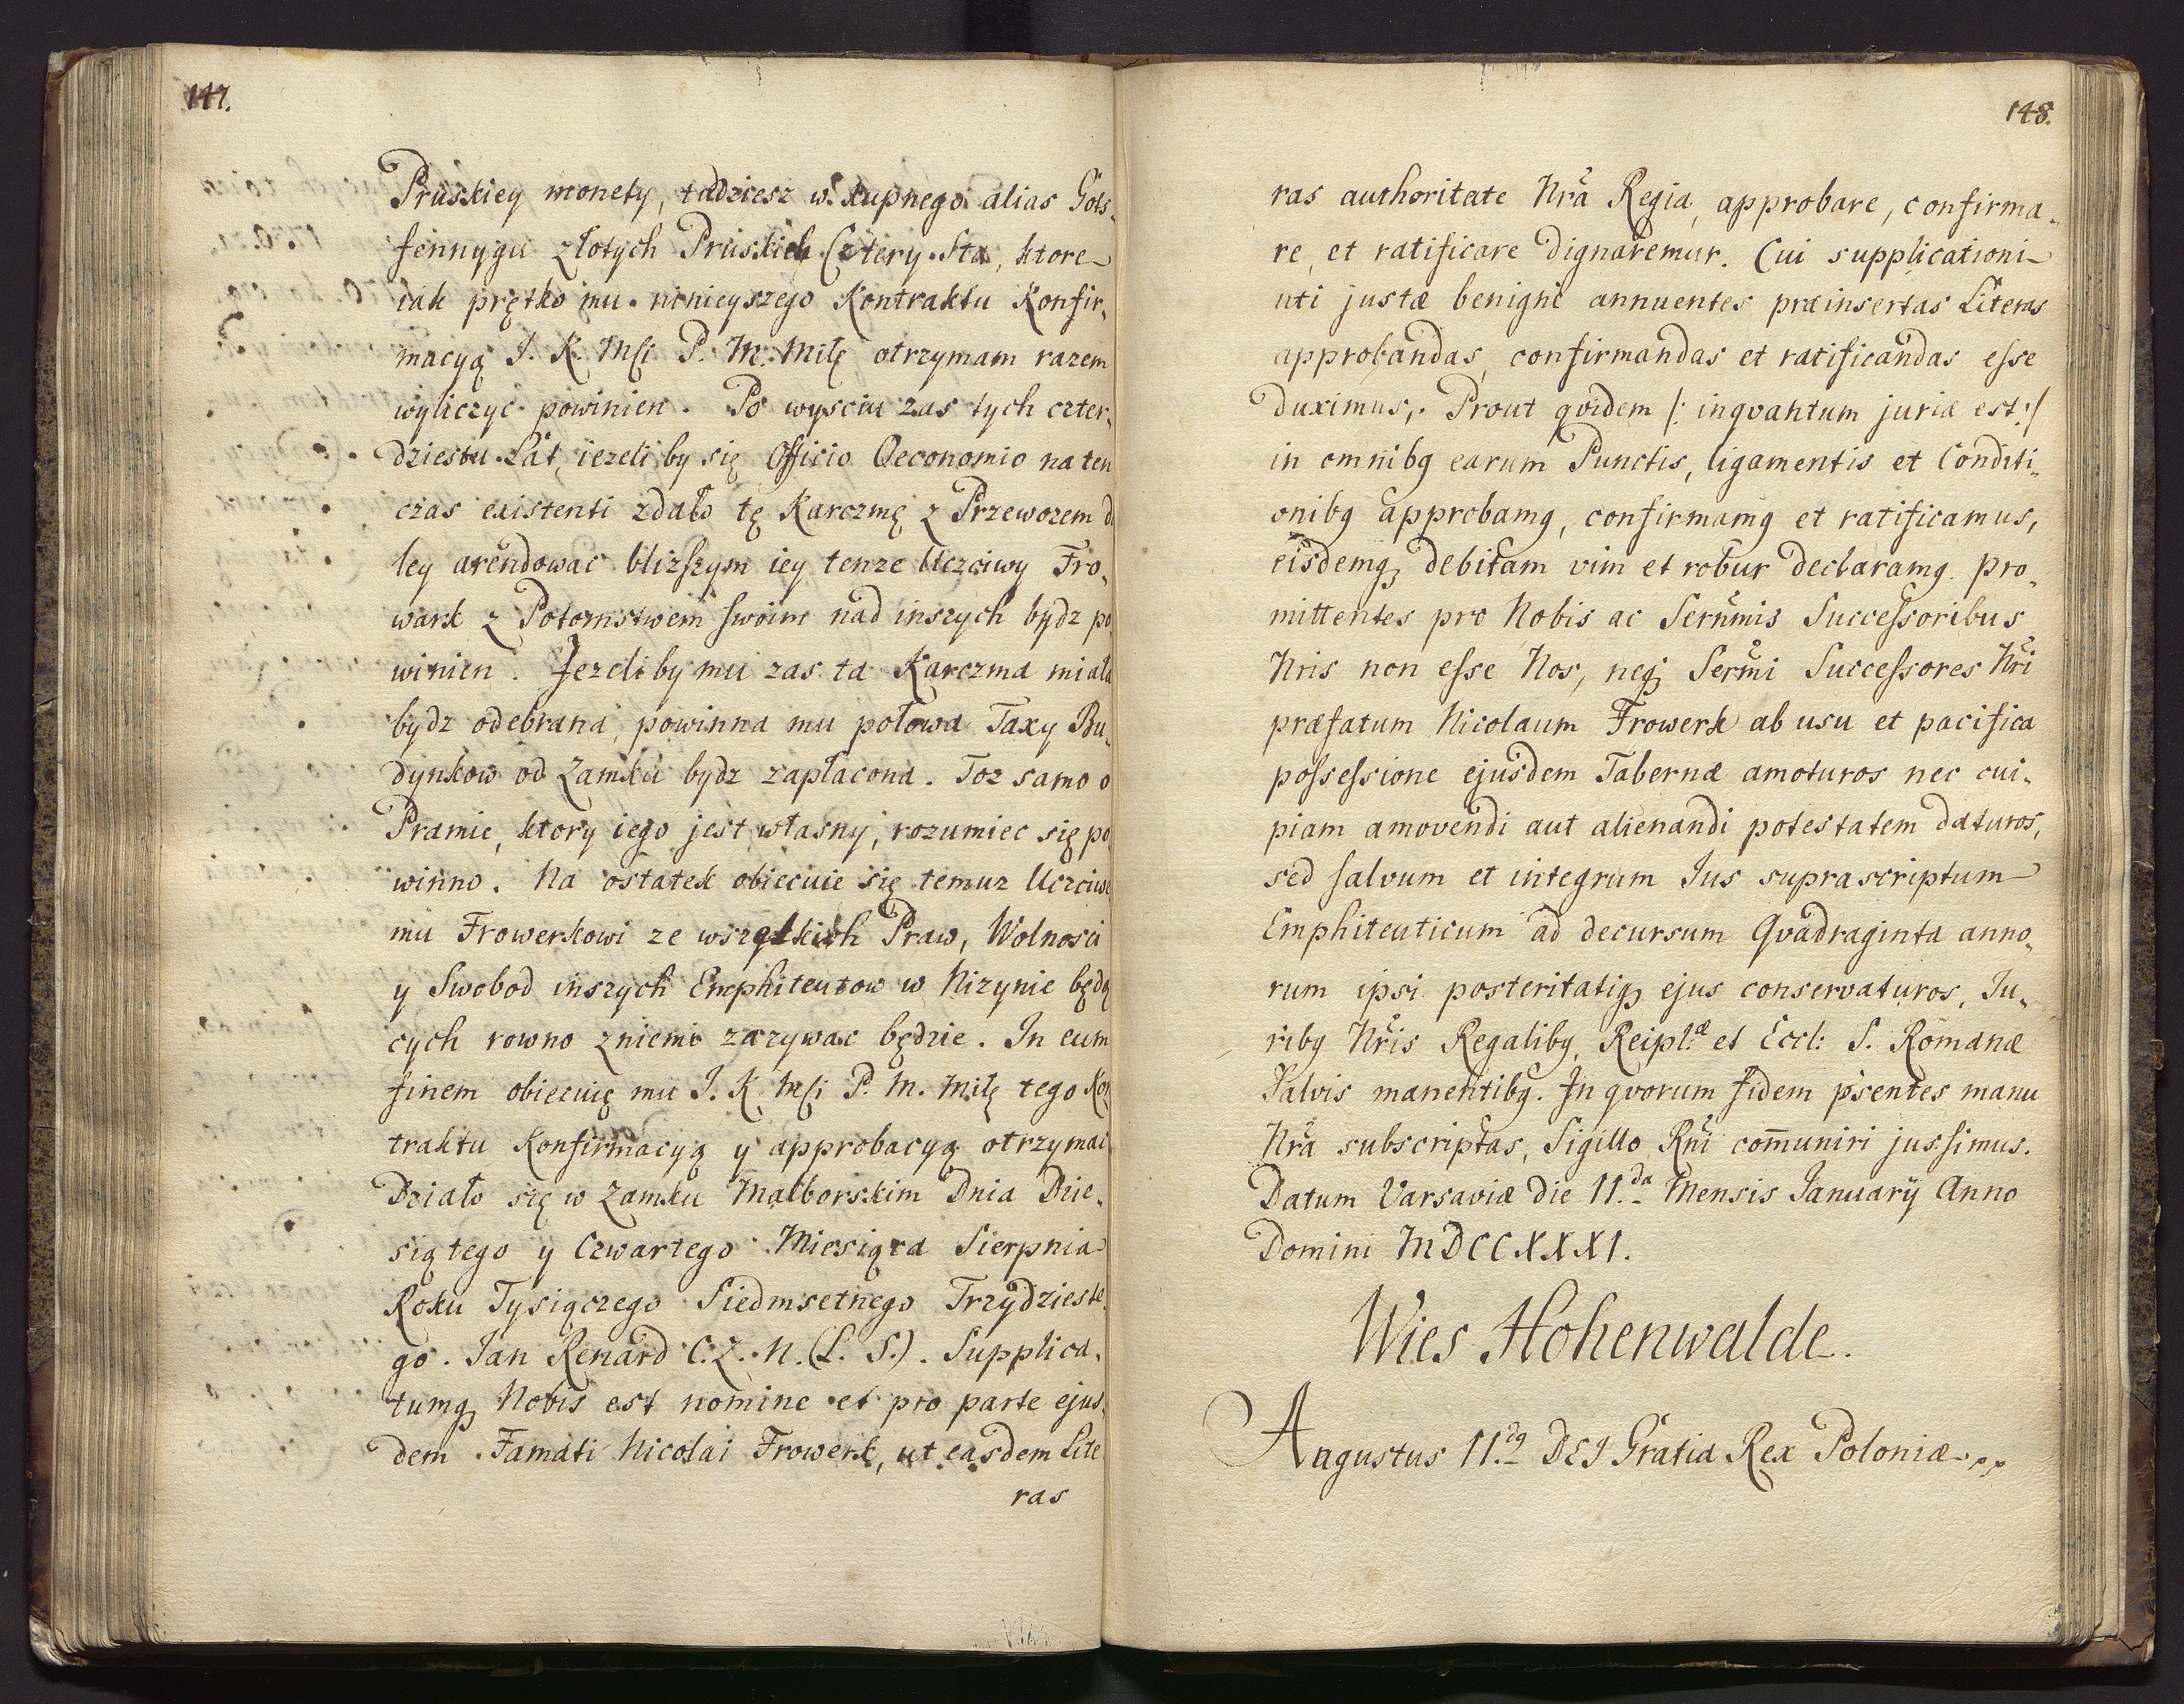 147.
Pruskiey monety, tudziesz w kupnego alias Gols„
fennygu złotych Pruskich Cztery Sta, ktore
iak prętko mu ninieyszego Kontraktu Konfir„
macyą J. K. Mſci P. M. Miłę otrzymam razem
wyliczyc powinien. Po wysciu zas tych czter„
dziestu Lat, iezeli by się Officio Oeconomio na ten
czas existenti zdało tę Karczmę z Przewozem d
ley arendowac blizſzym iey tenze Uczciwy Fro„
wark z Potomstwem swoim nad inszych bydz po
winien. Jezeli by mu zas ta Karczma miała
bydz odebrana, powinna mu połowa Taxy Bu„
dynkow od Zamku bydz zapłacona. Toz samo o
Pramie, ktory iego jest własny, rozumiec się po
winno. Na ostatek obiecuie się temuz Uczciwe
mu Frowerkowi ze wszelkich Praw, Wolnosci
y Swobod inszych Emphiteutow w Nizynie będą
cych rowno z niemi zazywac będzie. In eum
finem obiecuię mu J. K. Mſci P. M. Miłę tego Kon
traktu Konfirmacyą y approbacyą otrzymac
Działo się w Zamku Malborskim Dnia Dzie„
siątego y Czwartego Miesiąca Sierpnia
Roku Tysiączego Siedmsetnego Trzydzieste
go. Jan Renard C. Z. M. (L. S.). Supplica„
tumq; Nobis est nomine et pro parte ejus„
dem Famati Nicolai Frowerk, ut easdem Lite
ras
148.
ras authoritate Nrã Regia, approbare, confirma„
re, et ratificare dignaremur. Cui supplicationi
uti justæ benigne annuentes præinsertas Literas
approbandas, confirmandas et ratificandas eſse
duximus, Prout qvidem /: inqvantum juris est :/
in omnibq earum Punctis, ligamentis et Conditi„
onibq approbamq, confirmamq et ratificamus,
eisdemq; debitam vim et robur declaramq. pro„
mittentes pro Nobis ac Sernm̃is Succeſsoribus
Nris non eſse Nos, neq; Serm̃i Succeſsores Nr̃i
præfatum Nicolaum Frowerk ab usu et pacifica
poſseſsione ejusdem Tabernæ amoturos nec cui„
piam amovendi aut alienandi potestatem daturos,
sed salvum et integrum Jus suprascriptum
Emphiteuticum ad decursum Qvadraginta anno„
rum ipsi posteritatiq; ejus conservaturos, Ju„
ribq Nr̃is Regalibq, Reipl:æ et Eccl: S. Romanæ
Salvis manentibq. In qvorum fidem p̃sentes manu
Nrã subscriptas, Sigillo Rñi com̃uniri jusſimus.
Datum Varsaviæ die 11.da Mensis Januarÿ Anno
Domini MDCCXXXI.
Wies Hohenwalde.
Augustus II.dq DEJ Gratia Rex Poloniæ